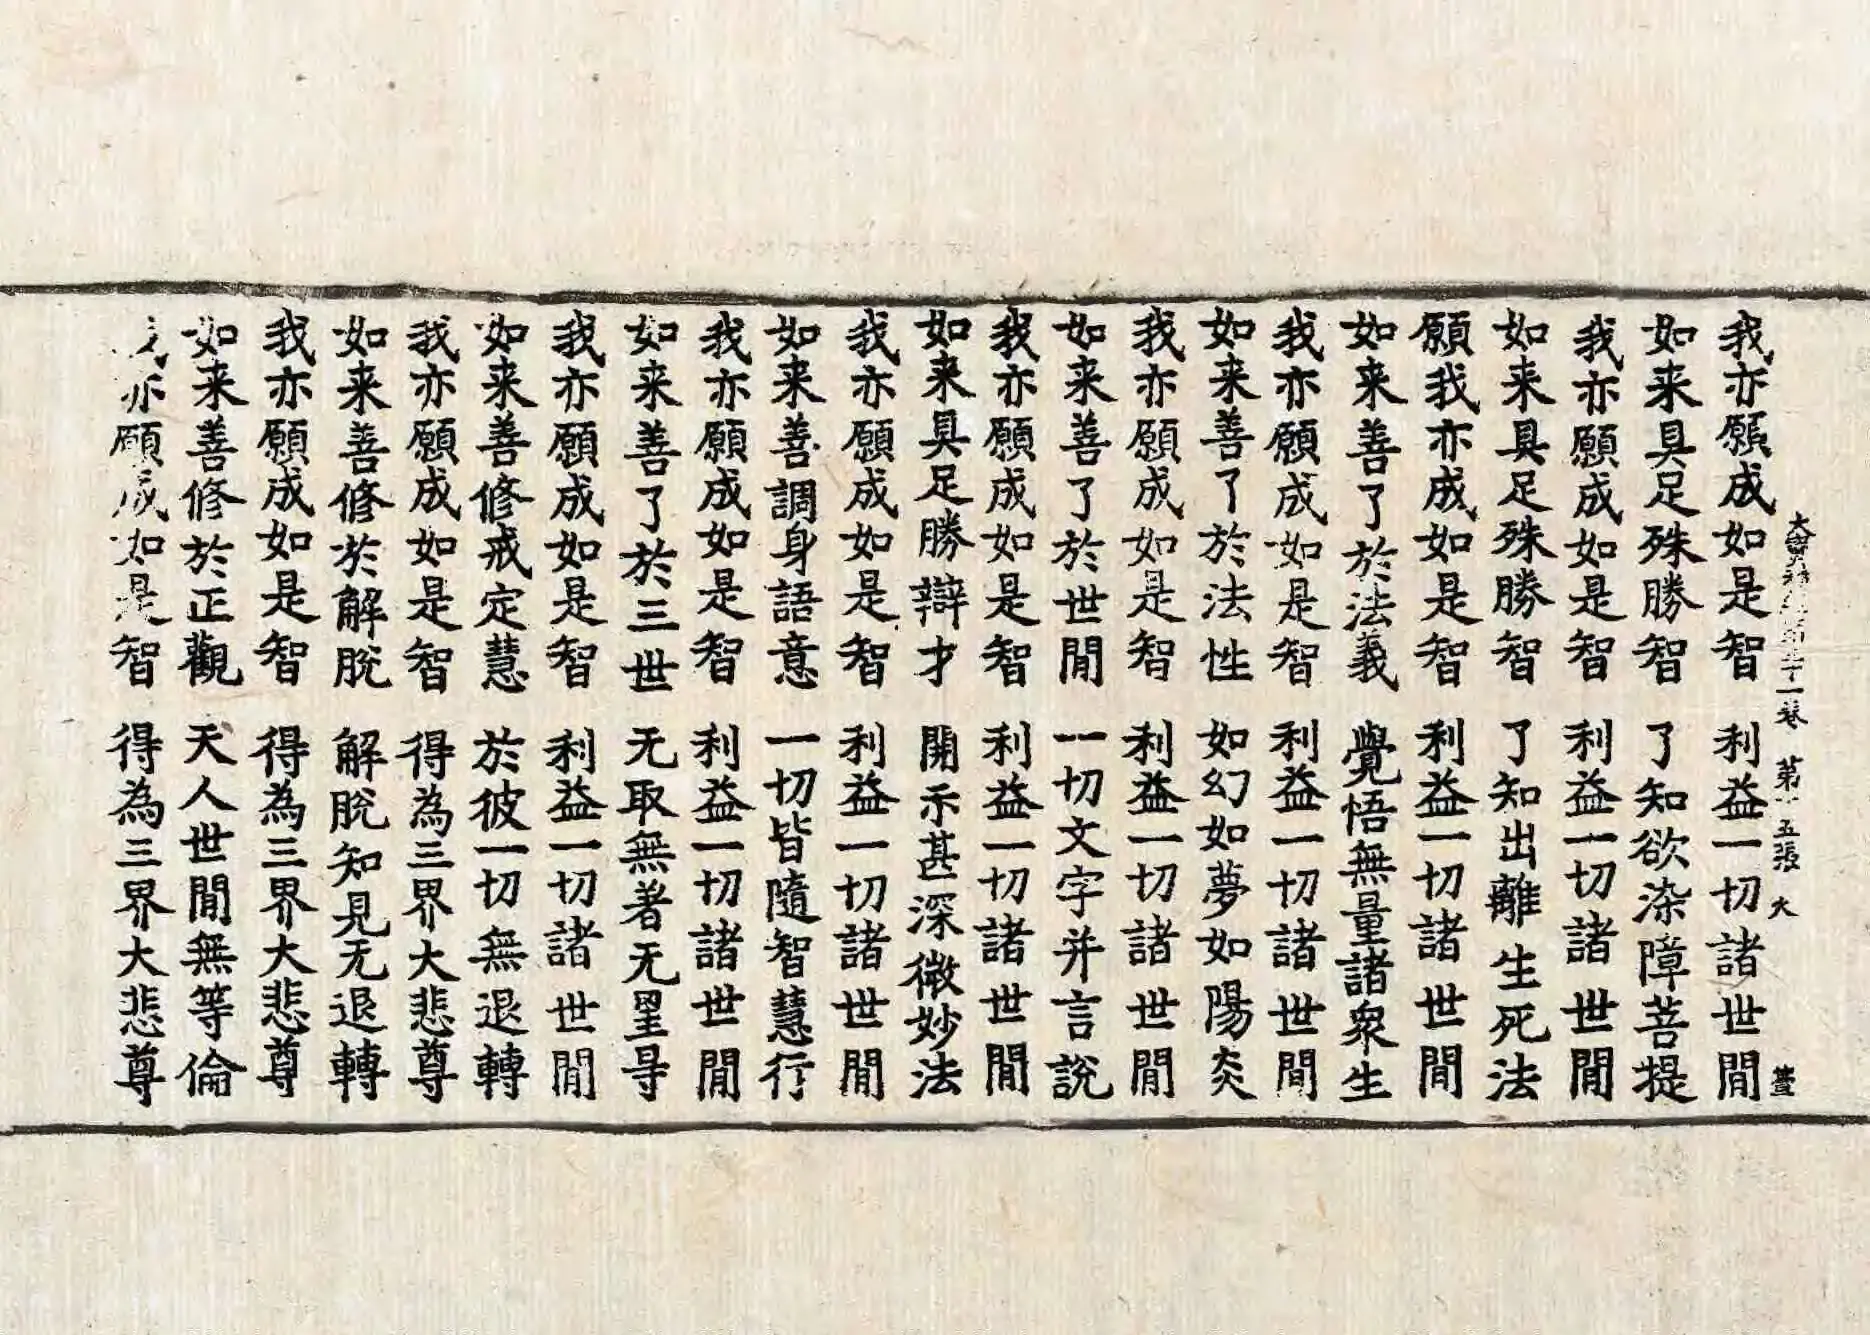 大寶積經第 十一卷 第十五張 大 蓋
我亦願成如是智 利益一切諸世閒
如来具足殊勝智 了知欲染障菩提
我亦願成如是智 利益一切諸世閒
如来具足殊勝智 了知出離生死法
願我亦成如是智 利益一切諸世閒
如来善了於法義 覺悟無量諸衆生
我亦願成如是智 利益一切諸世閒
如来善了於法性 如幻如夢如陽炎
我亦願成如是智 利益一切諸世閒
如来善了於世閒 一切文字并言說
我亦願成如是智 利益一切諸世閒
如来具足勝辯才 開示甚深微妙法
我亦願成如是智 利益一切諸世閒
如来善調身語意 一切皆隨智慧行
我亦願成如是智 利益一切諸世閒
如来善了於三世 无取無著无罣㝵
我亦願成如是智 利益一切諸世閒
如来善修戒定慧 於彼一切無退轉
我亦願成如是智 得為三界大悲尊
如来善修於解脫 解脫知見无退轉
我亦願成如是智 得為三界大悲尊
如来善修於正觀 天人世閒無等倫
我亦願成如是智 得為三界大悲尊